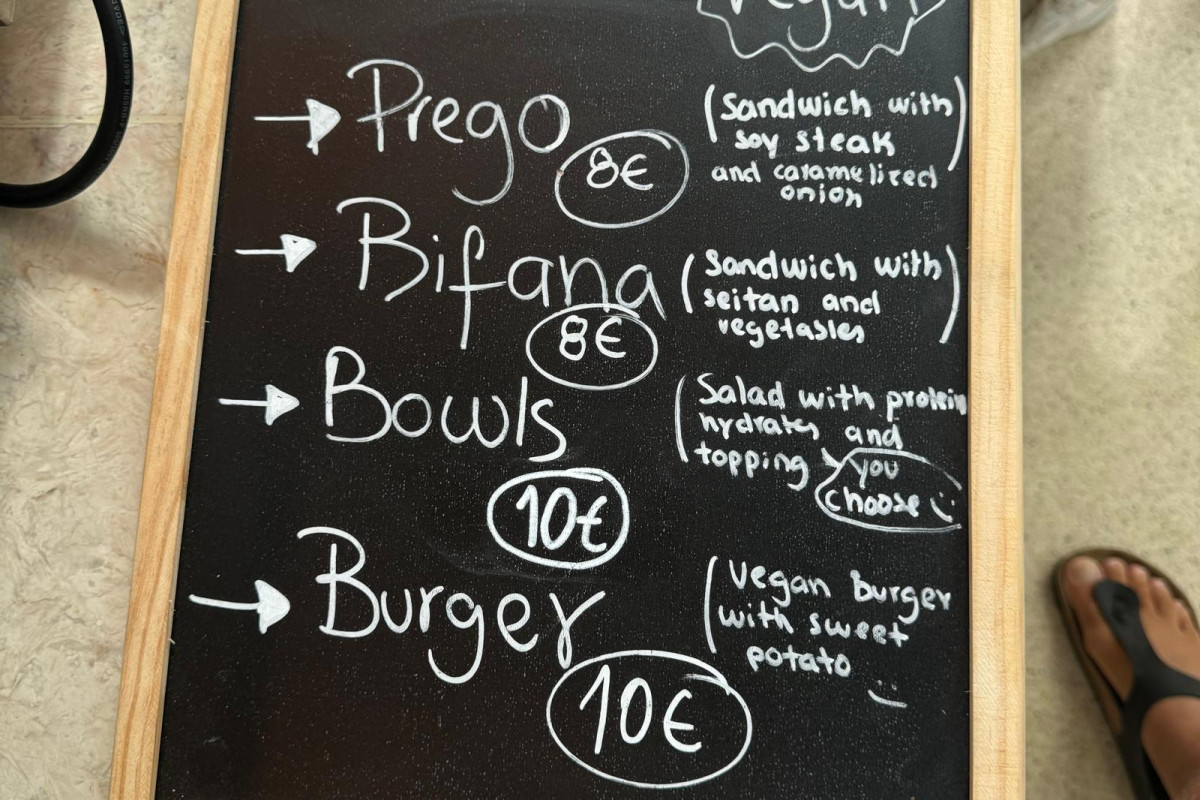 vegan
Prego
8€
(Sandwich with)
soy steak
and caramelized
onion
Bifana
8€
(Sandwich with)
seitan and
vegetables
Bowls
10€
(Salad with protein
hydrates and
topping you
choose :)
Burger
10€
(Vegan Burger
with sweet
potato :)